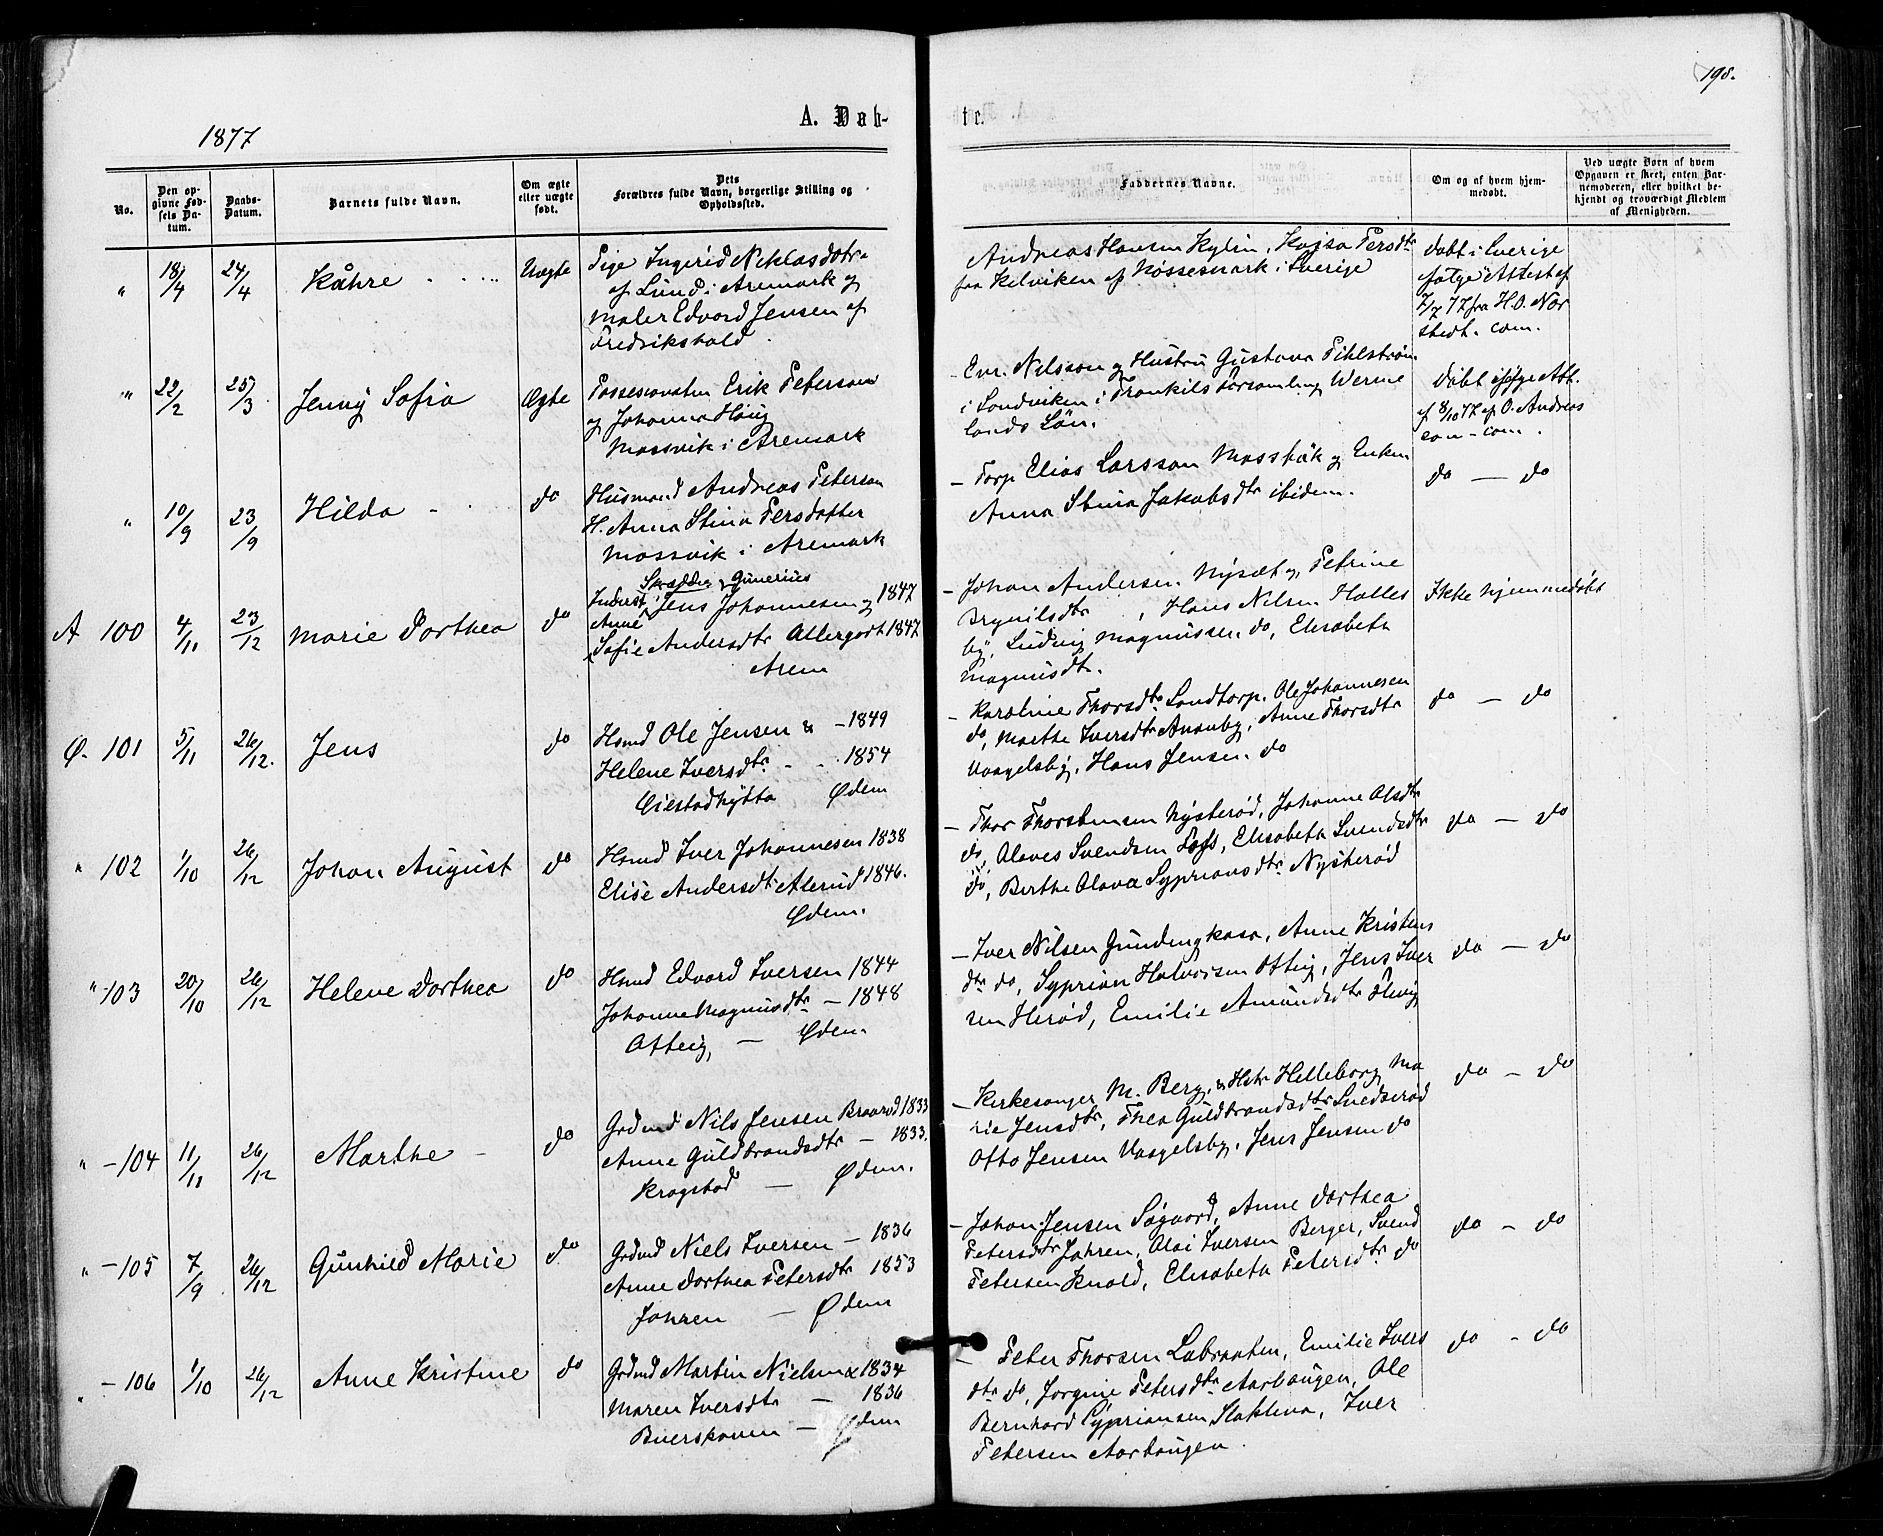 198.
A. Døb-
te.
1877
No.
Den op-
givne Fød-
sels Da-
tum.
Daabs-
Datum.
Barnets fulde Navn.
Om ægte
eller uægte
født.
Dets
Forældres fulde Navn, borgerlige Stilling og
Opholdssted.
Faddernes Navne.
Om og af hvem hjem-
medøbt.
Ved uægte Børn af hvem
Opgaven er skeet, enten Bar-
nemoderen, eller hvilket be-
kjendt og troværdigt Medlem
af Menigheden.
" 18/4 24/4 Kåhre Uægte
Pige Ingerid Niklasdotr
af Lund i Aremark og
Maler Edvard Jensen af
Fredrikshald.
Andreas Hansen Kylin, Kajsa Persdtr
fra Kelviken af Nøssemark i Sverige
Døbt i Sverige
ifølge Attest af
7/7 77 fra H.O. Nor
stedt. com.
" 22/2 25/3 Jenny Sofia Ægte
Possessionaten Erik Peterson
og Johanna Haug
Massvik i Aremark
- Nilsson og Hustru Gustava Pihlström
i Sandviken i Trankils Forsamling Werme
lands Län.
Døbt ifølge Att.
af 8/10 77 af O. Andreas
son - com.
" 10/9 23/9 Hilda do
Husmand Andreas Peterson
H. Anna Stina Persdotter
Massvik i Aremark
- Torp Elias Larsson Massbäk og Enken
Anna Stina Jakobsdtr ibidem.
do - do
A 100 4/11 23/12 Marie Dorthea do
Skrædder Gunerius
Inderst Jens Johannesen og 1847
Anne
Sofie Andersdtr Allergodt 1847
Arem
- Johan Andersen Nysæt og Petrine
Brynilsdtr, Hans Nilsen Halles
by, Ludvig Magnussen do, Elisabeth
Magnusdtr.
Ikke hjemmedøbt
Ø. 101 5/11 26/12. Jens do
Hsmd Ole Jensen & - 1849
Helene Iversdtr - 1854
Eiestadhytta Ødem
- Karoline Thorsdtr Sandtorp, Ole Johannesen
do, Marthe Iversdtr Ananby, Anne Thorsdtr
Vasgelsby, Hans Jensen do
do - do
" 102 1/10 26/12 Johan August do
Hsmd Iver Johannesen 1838
Elise Andersdtr Alerud 1846.
Ødem.
- Thor Thorstensen Nysterød, Johanne Olsdtr
do, Alaves Svendsen, Elisabeth Svendsdtr
do, Berthe Olava Syprionsdtr Nysterød
do - do
" 103 20/10 26/12 Helene Dorthea do
Hsmd Edvard Iversen 1844
Johanne Magnusdtr - 1848
Otteig, - Ødem.
- Iver Nilsen Gundengkasa, Anne Kristens
dtr do, Syprian Halvorsen Otteig, Jens Iver
sen Herød, Emilie Amundsdtr Elvig
do - do
" - 104 11/11 26/12 Marthe - do
Grdmd Nils Jensen Braarød 1833
Anne Guldbrandsdtr - 1833.
Kragstad - Ødem.
- Kirkesanger M. Berg, & Hstr Helleborg Ma
rie Jensdtr, Thea Guldbrandsdtr Svedserød
Otto Jensen Vasgelsby, Jens Jensen do
do - do
" - 105 7/9 26/12 Gunhild Marie do
Grdmd Niels Iversen - 1836
Anne Dorthea Petersdtr 1853
Jahren - Ødem
- Johan Jensen Søgaard, Anne Dorthea
Petersdtr Jahren, Olai Iversen Berger, Svend
Petersen Knold, Elisabeth Petersdtr do
do - do
" - 106 1/10 26/12 Anne Kristine do
Grdmd Martin Nielsen & 1834
Maren Iversdtr - 1836
Buerskoven - Ødem
- Peter Thorsen Labraaten, Emilie Ivers
dtr do, Jorgine Petersdtr Aarbaugen, Ole
Bernhard Syprionsen Slakleva, Iver
Petersen Aarhaugen.
do - do